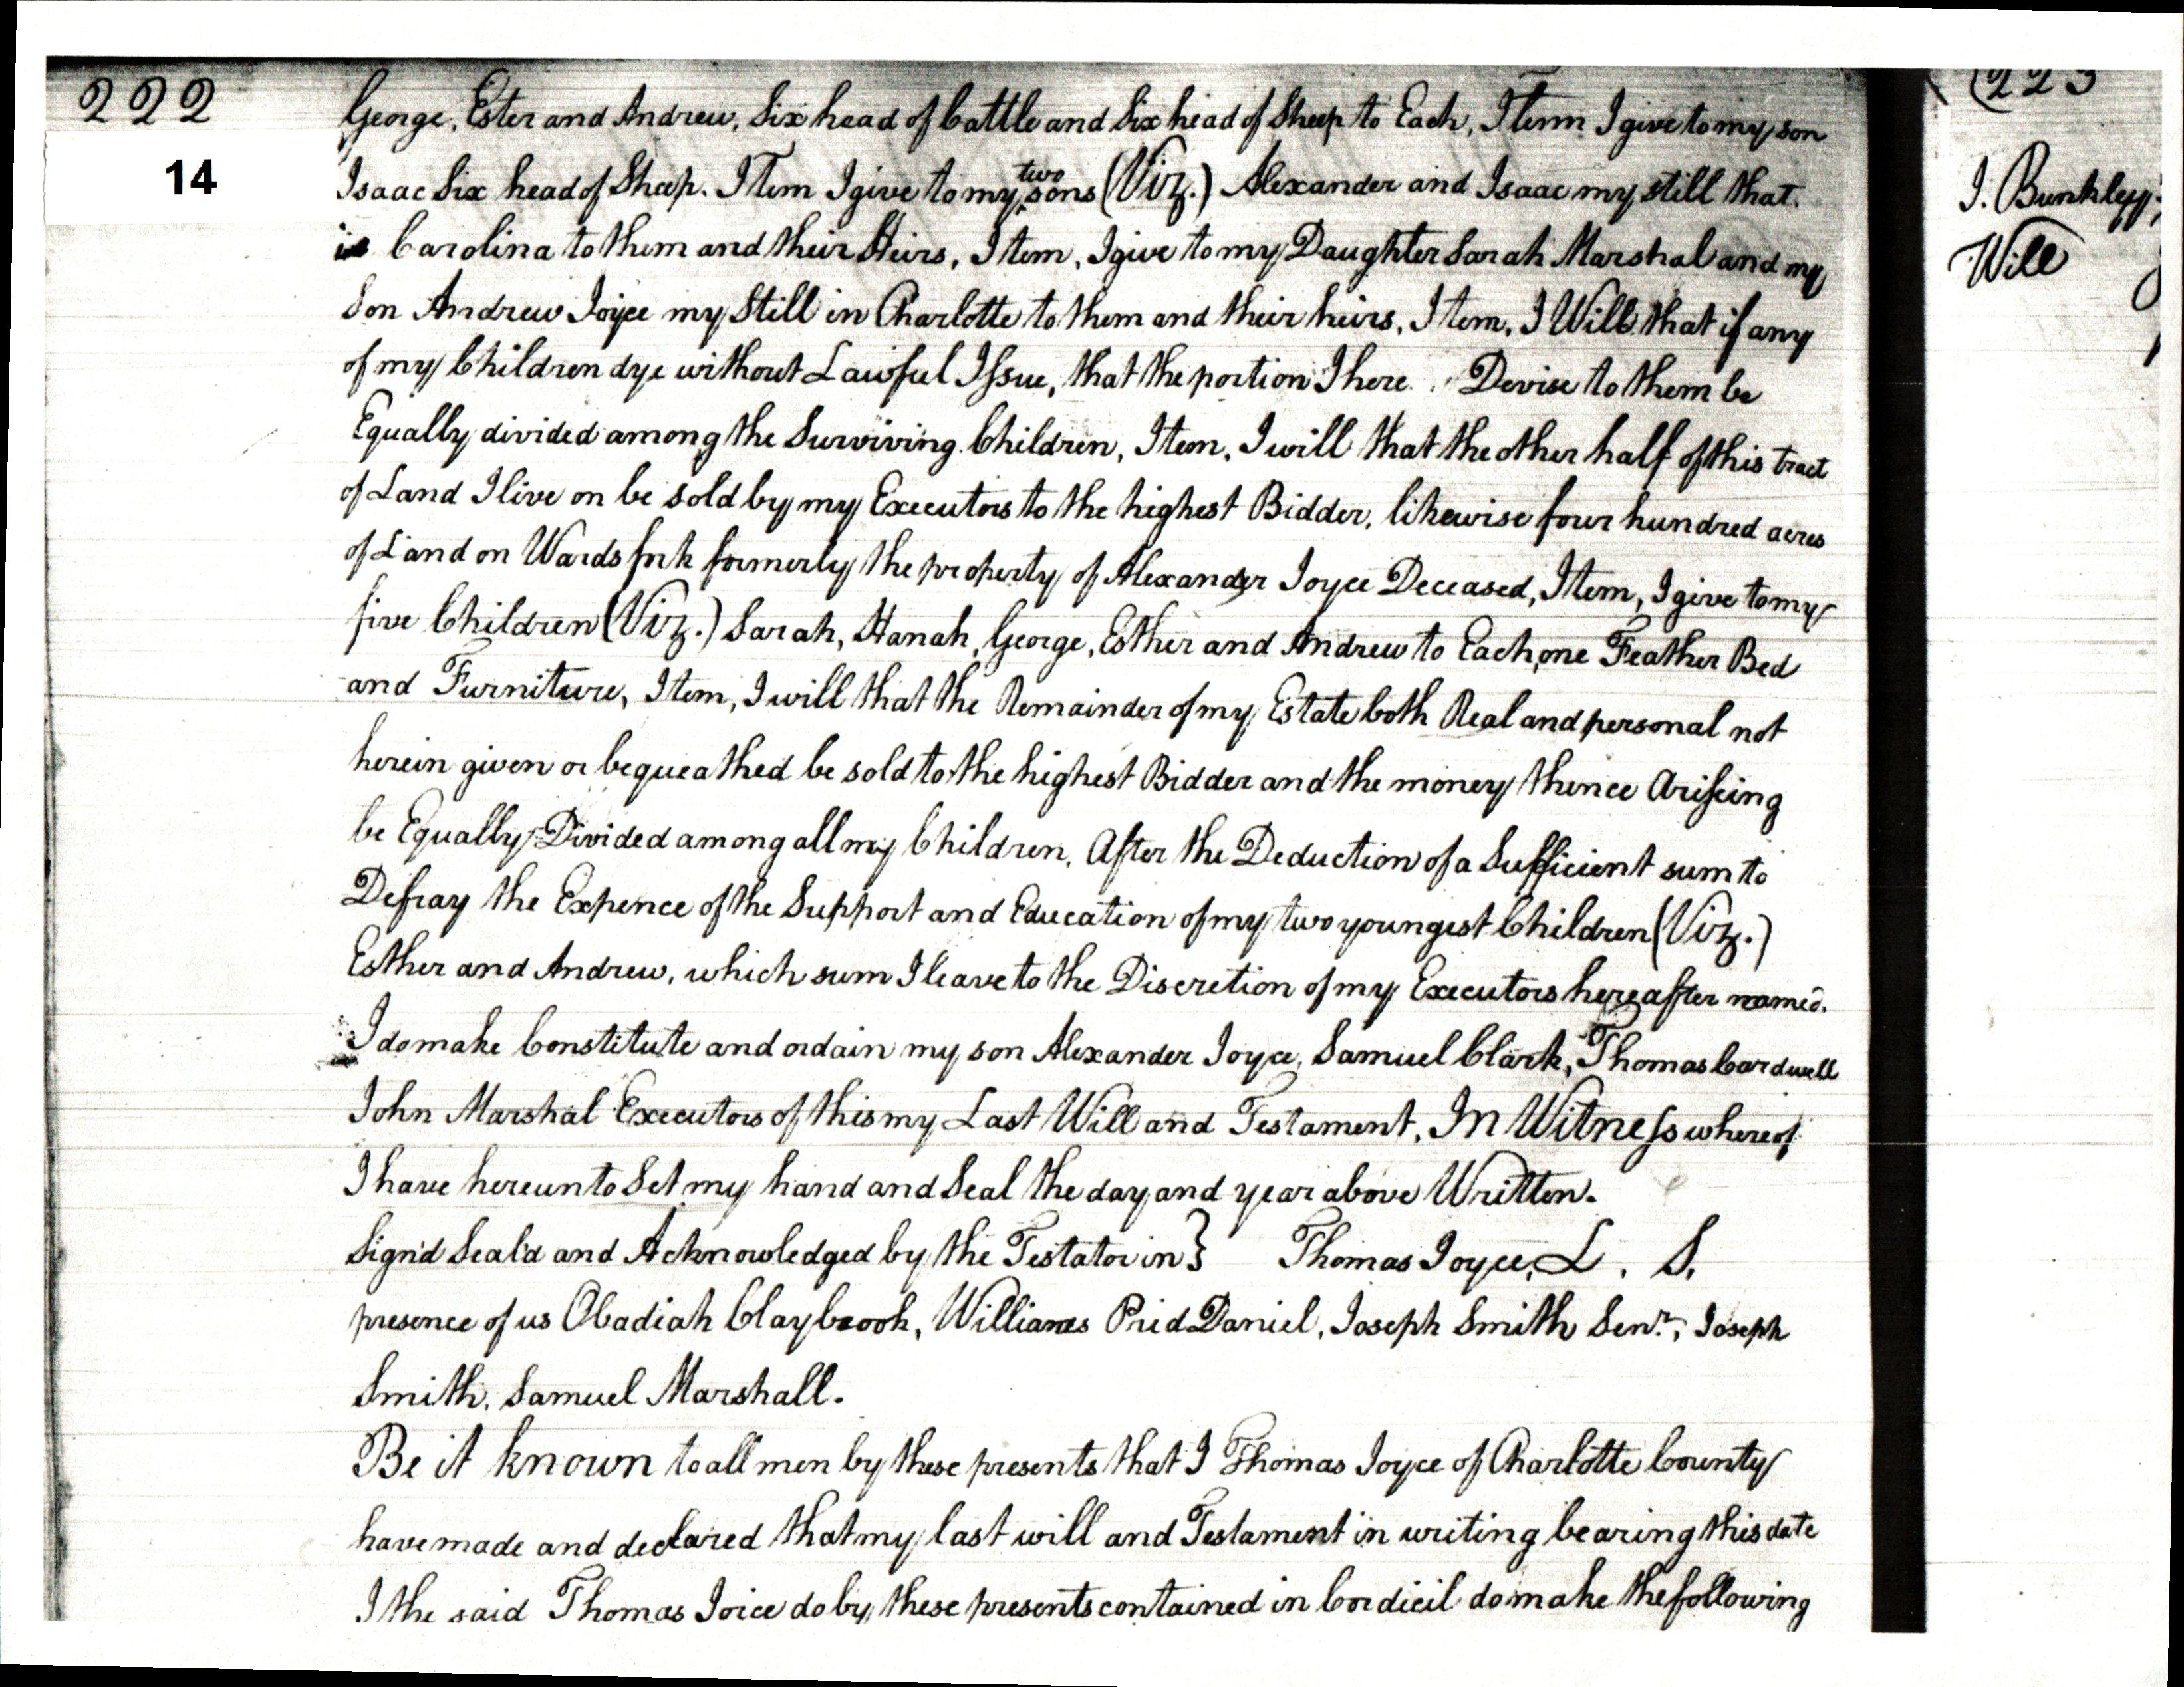 222
14
George, Ester and Andrew, Six head of Cattle and Six head of Sheep to Each, Item I give to my son
Isaac Six head of Sheep. Item I give to my two sons (Viz.) Alexander and Isaac my still that
is Carolina to them and their Heirs, Item, I give to my Daughter Sarah Marshal and my
Son Andrew Joyce my Still in Charlotte to them and their heirs, Item, I Will that if any
of my Children dye without Lawful Issue, that the portion I here Devise to them be
Equally divided among the Surviving Children, Item, I will that the other half of this tract
of Land I live on be sold by my Executors to the highest Bidder, likewise four hundred acres
of Land on Wards fork formerly the property of Alexander Joyce Deceased, Item, I give to my
five Children (Viz.) Sarah, Hanah, George, Esther and Andrew to Each, one Feather Bed
and Furniture, Item, I will that the Remainder of my Estate both Real and personal not
herein given or bequeathed be sold to the highest Bidder and the money thence Ariseing
be Equally Divided among all my Children, After the Deduction of a Sufficient sum to
Defray the Expence of the Support and Education of my two youngest Children (Viz.)
Esther and Andrew, which sum I leave to the Discretion of my Executors hereafter named.
I do make Constitute and ordain my son Alexander Joyce, Samuel Clark, Thomas Cardwell
John Marshal Executors of this my Last Will and Testament, In Witness whereof
I have hereunto Set my hand and Seal the day and year above Written.
Sign'd Seal'd and Acknowledged by the Testator in } Thomas Joyce, L. S.
presence of us Obadiah Claybrook, Williams Prid Daniel, Joseph Smith Senr., Joseph
Smith, Samuel Marshall.
Be it known to all men by these presents that I Thomas Joyce of Charlotte County
have made and declared that my last will and Testament in writing bearing this date
I the said Thomas Joice do by these presents contained in Cordicil do make the following
223
J. Bunkley
Will